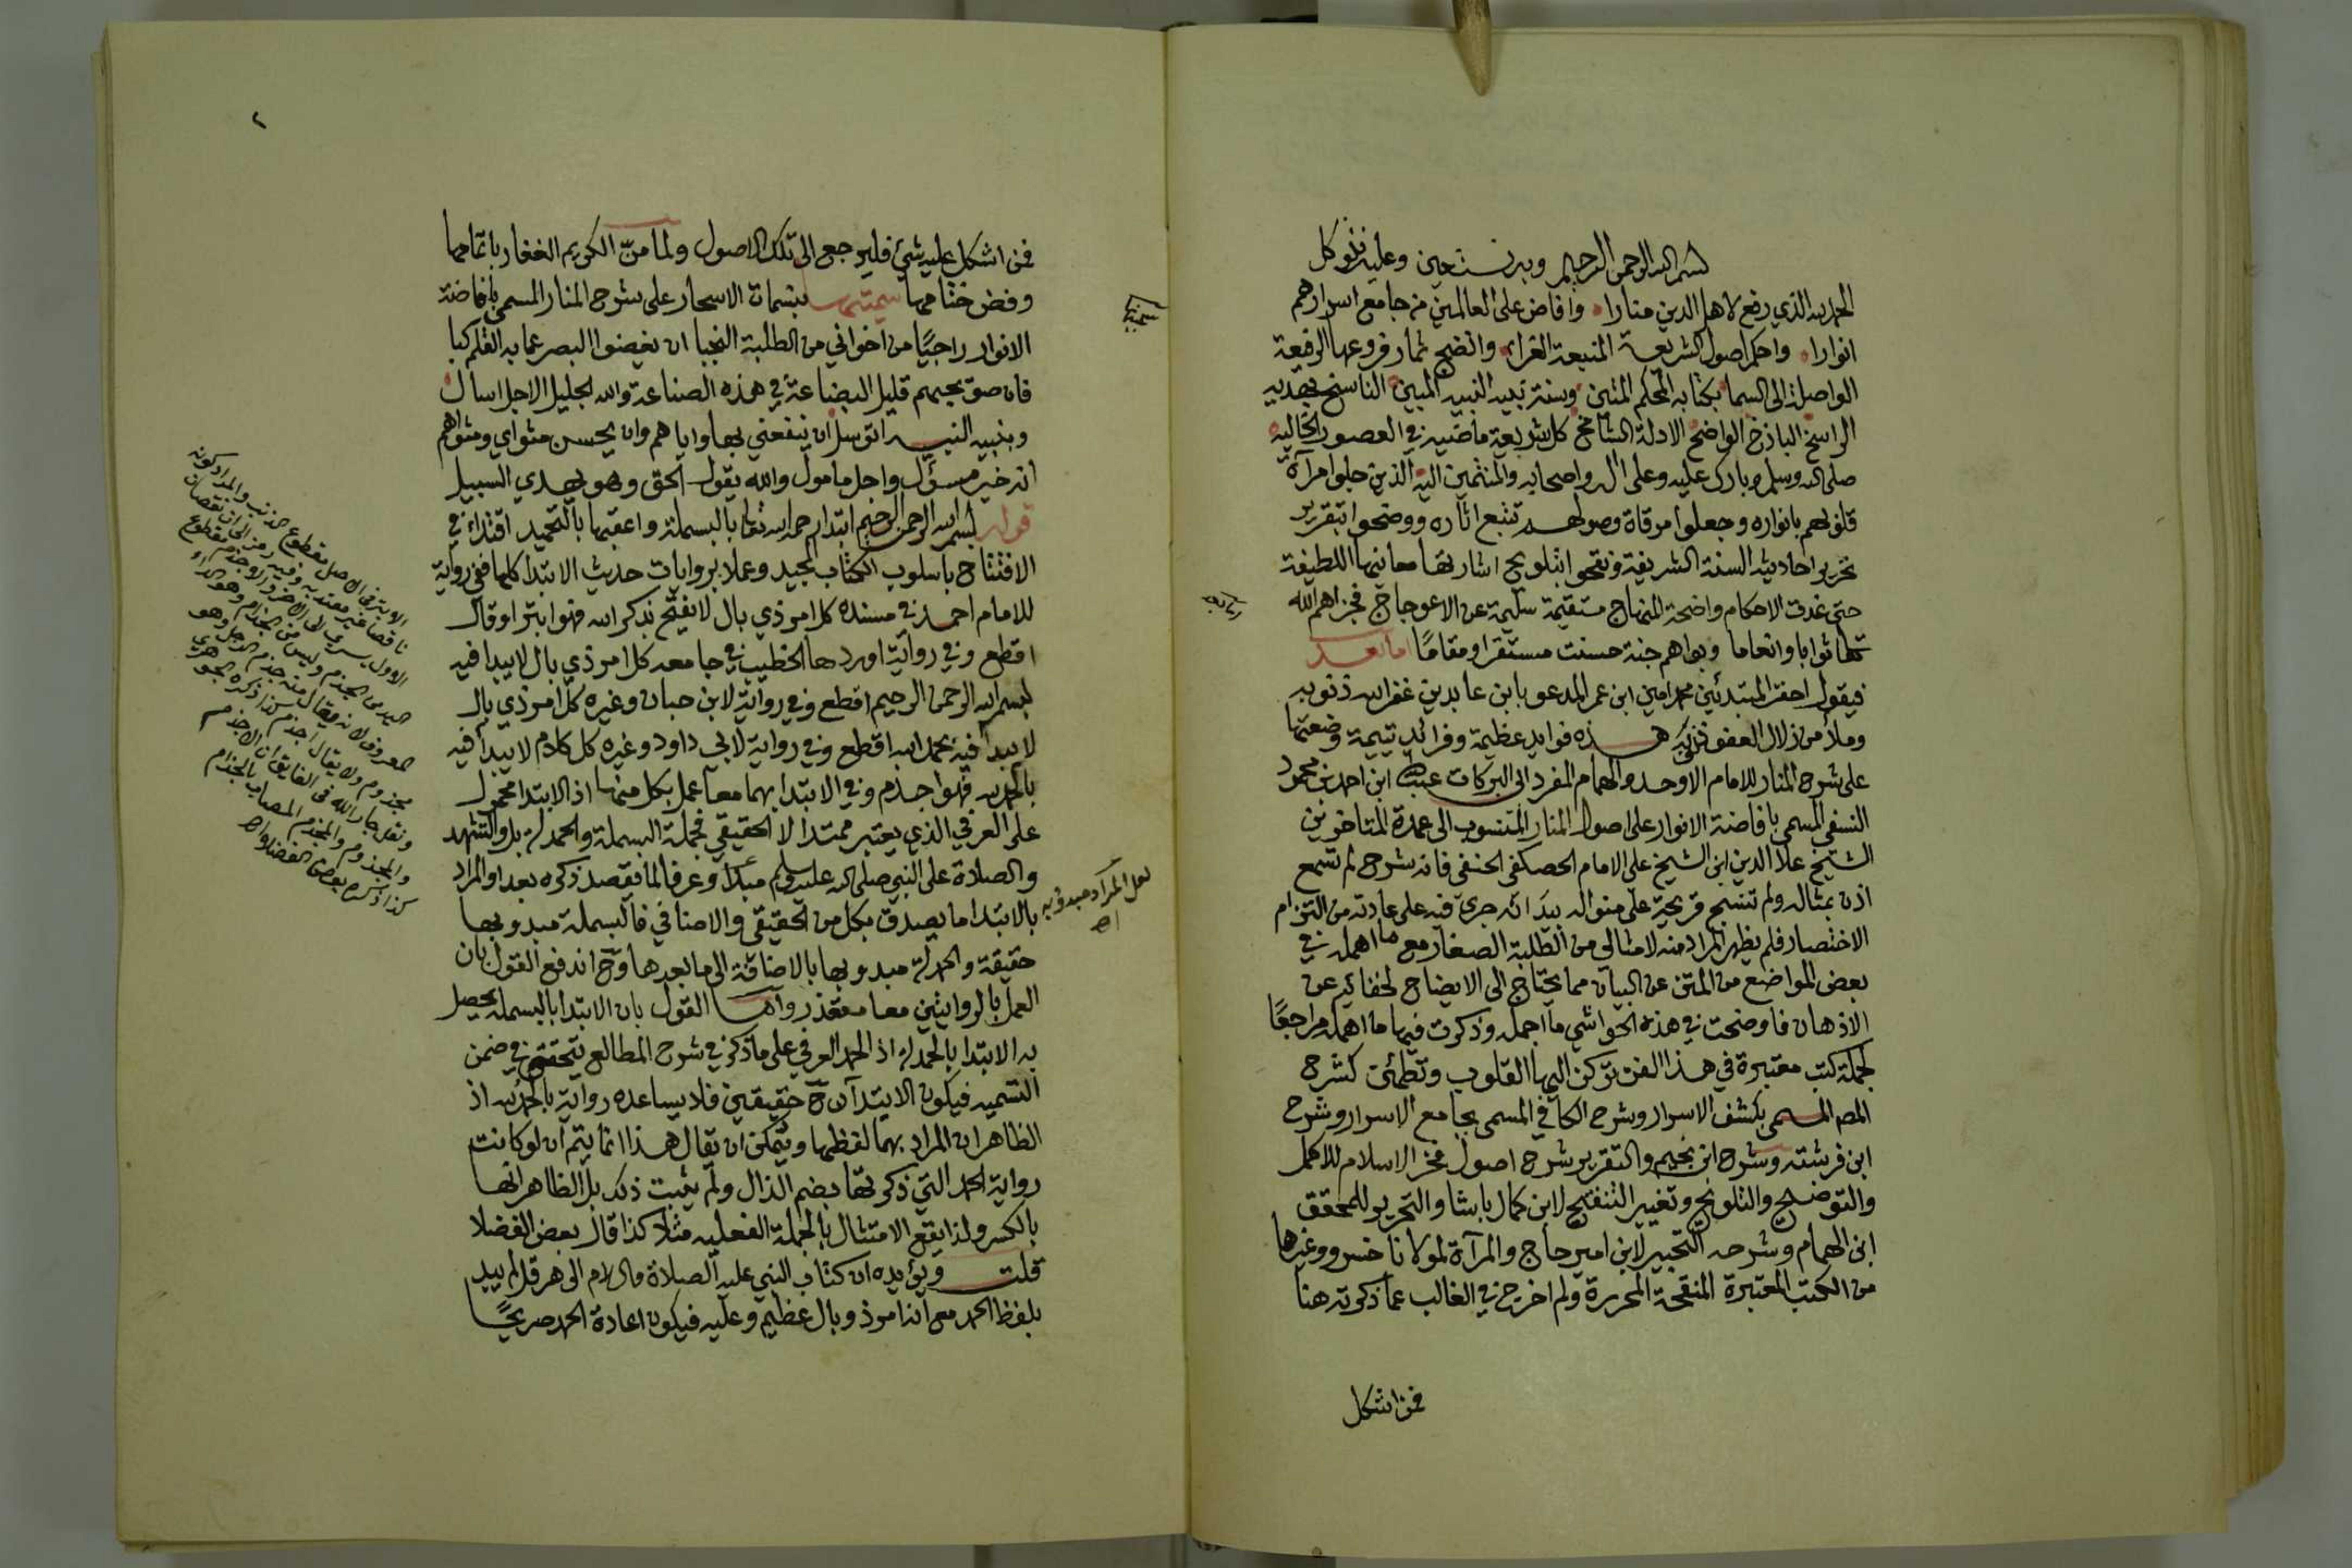 بسم الله الرحمن الرحيم وبه نستعين وعليه نتوكل
الحمد لله الذي رفع لاهل الدين منارا وافاض على العالمين من جامع اسرارهم
انوارا واحكم اصول الشريعة المنيعة الغراء واتضح ثمار فروعها الرفيعة
الواصلة الى السما بكتابه المحكم المتين وسنة نبيه النبيه المبين الناسخ بهديه
الراسخ الباذخ الواضح الادلة الشامخ كل شريعة ماضيه في العصور الخاليه
صلى الله وسلم وبارك عليه وعلى ال واصحابه والمنتمين اليه الذين جلوا مرآة
قلوبهم بانواره وجعلوا مرقاة وصولهم تتبع اثاره ووضحوا بتقرير
تحرير احاديث السنة الشريفة ونقحوا بتلويح اشارتها معانيها اللطيفة
حتى غدت الاحكام واضحة المنهاج مستقيمة سليمة عن الاعوجاج فجزاهم الله
تعالى ثوابا وانعاما وبواهم جنة حسنت مستقرا ومقامًا اما بعد
فيقول احقر المبتدئين محمد امين ابن عمر المدعو بابن عابدين غفر الله ذنوبه
وملأ من زلال العفو ذنوبه هذه فوايد عظيمة وفرائد يتيمة وضعتها
على شرح المنار للامام الاوحد والهمام المفرد ابى البركات عبد الله ابن احمد بن محمود
النسفي المسمى بافاضة الانوار على اصول المنار المنسوب الى عمدة المتاخرين
الشيخ علا الدين ابن الشيخ على الامام الحصكفى الحنفى فانه شرح لم تسمع
اذن بمثاله ولم تنسج قريحة على منواله بيد انه جرى فيه على عادته من التزام
الاختصار فلم يظهر المراد منه لامثالي من الطلبة الصغار مع ما اهمله في
بعض المواضع من المتن عن البيان مما يحتاج الى الايضاح لخفائه عن
الاذهان فاوضحت في هذه الحواشي ما اجمله وذكرت فيها ما اهمله مراجعًا
لجملة كتب معتبرة في هذا الفن تركن اليها القلوب وتطمئن كشرح
المص المسمى بكشف الاسرار وشرح الكافي المسمى بجامع الاسرار وشرح
ابن فرشته وشرح ابن نجيم والتقرير شرح اصول فخر الاسلام للاكمل
والتوضيح والتلويح وتغيير التنقيح لابن كمال باشا والتحرير للمحقق
ابن الهمام وشرحه التحبير لابن امير حاج والمرآة لمولانا خسرو وغيرها
من الكتب المعتبرة المنقحة المحررة ولم اخرج في الغالب عما ذكرته هنا
فمن اشكل
٢
فمن اشكل عليه شيئ فليرجع الى تلك الاصول ولما منّ الكريم الغفار باتمامها
وفض ختامها سميتها بنسمات الاسحار على شرح المنار المسمى بافاضة
الانوار راجيًا من اخواني من الطلبة النجبا ان يغضوا البصر عما به القلم كبا
فان صو يحبهم قليل البضاعة في هذه الصناعة والله الجليل الاجل اسال
وبنبيه النبيه اتوسل ان ينفعني بها واياهم وان يحسن مثواي ومثواهم
انه خير مسؤل واجل مامول والله يقول الحق وهو يهدي السبيل
قوله بسم الله الرحمن الرحيم ابتدا رحمه الله تعالى بالبسملة واعقبها بالتحميد اقتداء في
الافتتاح باسلوب الكتاب المجيد وعملا بروايات حديث الابتدا كلها ففي رواية
للامام احمد في مسنده كل امر ذي بال لا يفتح بذكر الله فهو ابتر او قال
اقطع وفي رواية اوردها الخطيب في جامعه كل امر ذي بال لا يبدا فيه
ببسم الله الرحمن الرحيم اقطع وفي رواية لابن حبان وغيره كل امر ذي بال
لا يبدأ فيه بحمد الله اقطع وفي رواية لابي داود وغيره كل كلام لا يبدا فيه
بالحمد لله فهو اجذم وفي الابتدا بهما معا عمل بكل منها اذ الابتدا محمول
على العرفي الذي يعتبر ممتدا لا الحقيقي فجملة البسملة والحمدلة بل والتشهد
والصلاة على النبي صلى الله عليه وسلم مبدأ وعرفا لما يقصد ذكره بعد او المراد
بالابتدا ما يصدق بكل من الحقيقي والاضافي فالبسملة مبدو بها
حقيقة والحمدلة مبدو بها بالاضافة الى ما بعدها وح اندفع القول بان
العمل بالروايتين معا متعذر واما القول بان الابتدا بالبسملة يحصل
به الابتدا بالحمدلة اذ الحمد العرفي على ما ذكر في شرح المطالع يتحقق في ضمن
التسميه فيكون الابتدآن ح حقيقين فلا يساعده رواية بالحمد لله اذ
الظاهر ان المراد بهما لفظها ويمكن ان يقال هذا انما يتم ان لو كانت
رواية الحمد التي ذكرتها بضم الدال ولم يثبت ذلك بل الظاهر انها
بالكسر ولذا يقع الامتثال بالجملة الفعليه مثلا كذا قال بعض الفضلا
قلت ويؤيده ان كتاب النبي عليه الصلاة والسلام الى هرقل لم يبد
بلفظ الحمد مع انه امر ذو بال عظيم وعليه فيكون اعادة الحمد صريحًا
سميتها
لعل المراد مبدو به
اه
الاوبتر في الاصل مقطوع الذنب والمراد كونه
ناقصا غير معتد به وفيه رمز الى ان نقصان
الاول يسري الى الاخر
مجذوم ولا يقال اجذم كذا ذكره الجوهري
ونقل جار الله في الفايق ان الاجذم
والمجذوم والمجذم المصاب بالجذام
كذا ذكره بعض الفضلا اه